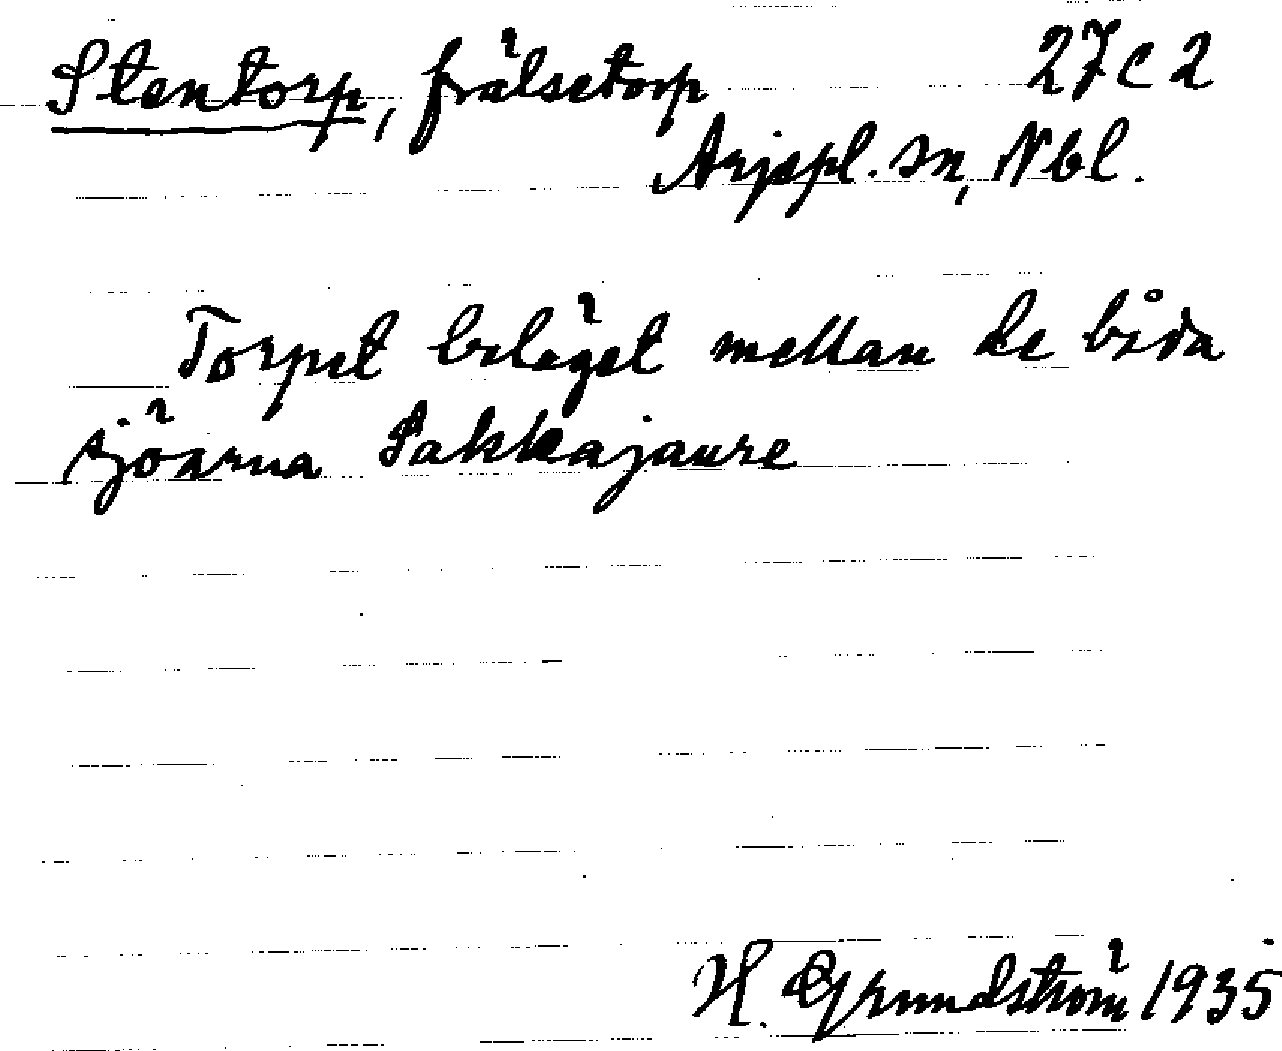 Stentorp, frälsetorp 27c2
Arjepl. sn, Nbl.
Torpet beläget mellan de båda
sjöarna Sakkajaure
H. Grundström 1935